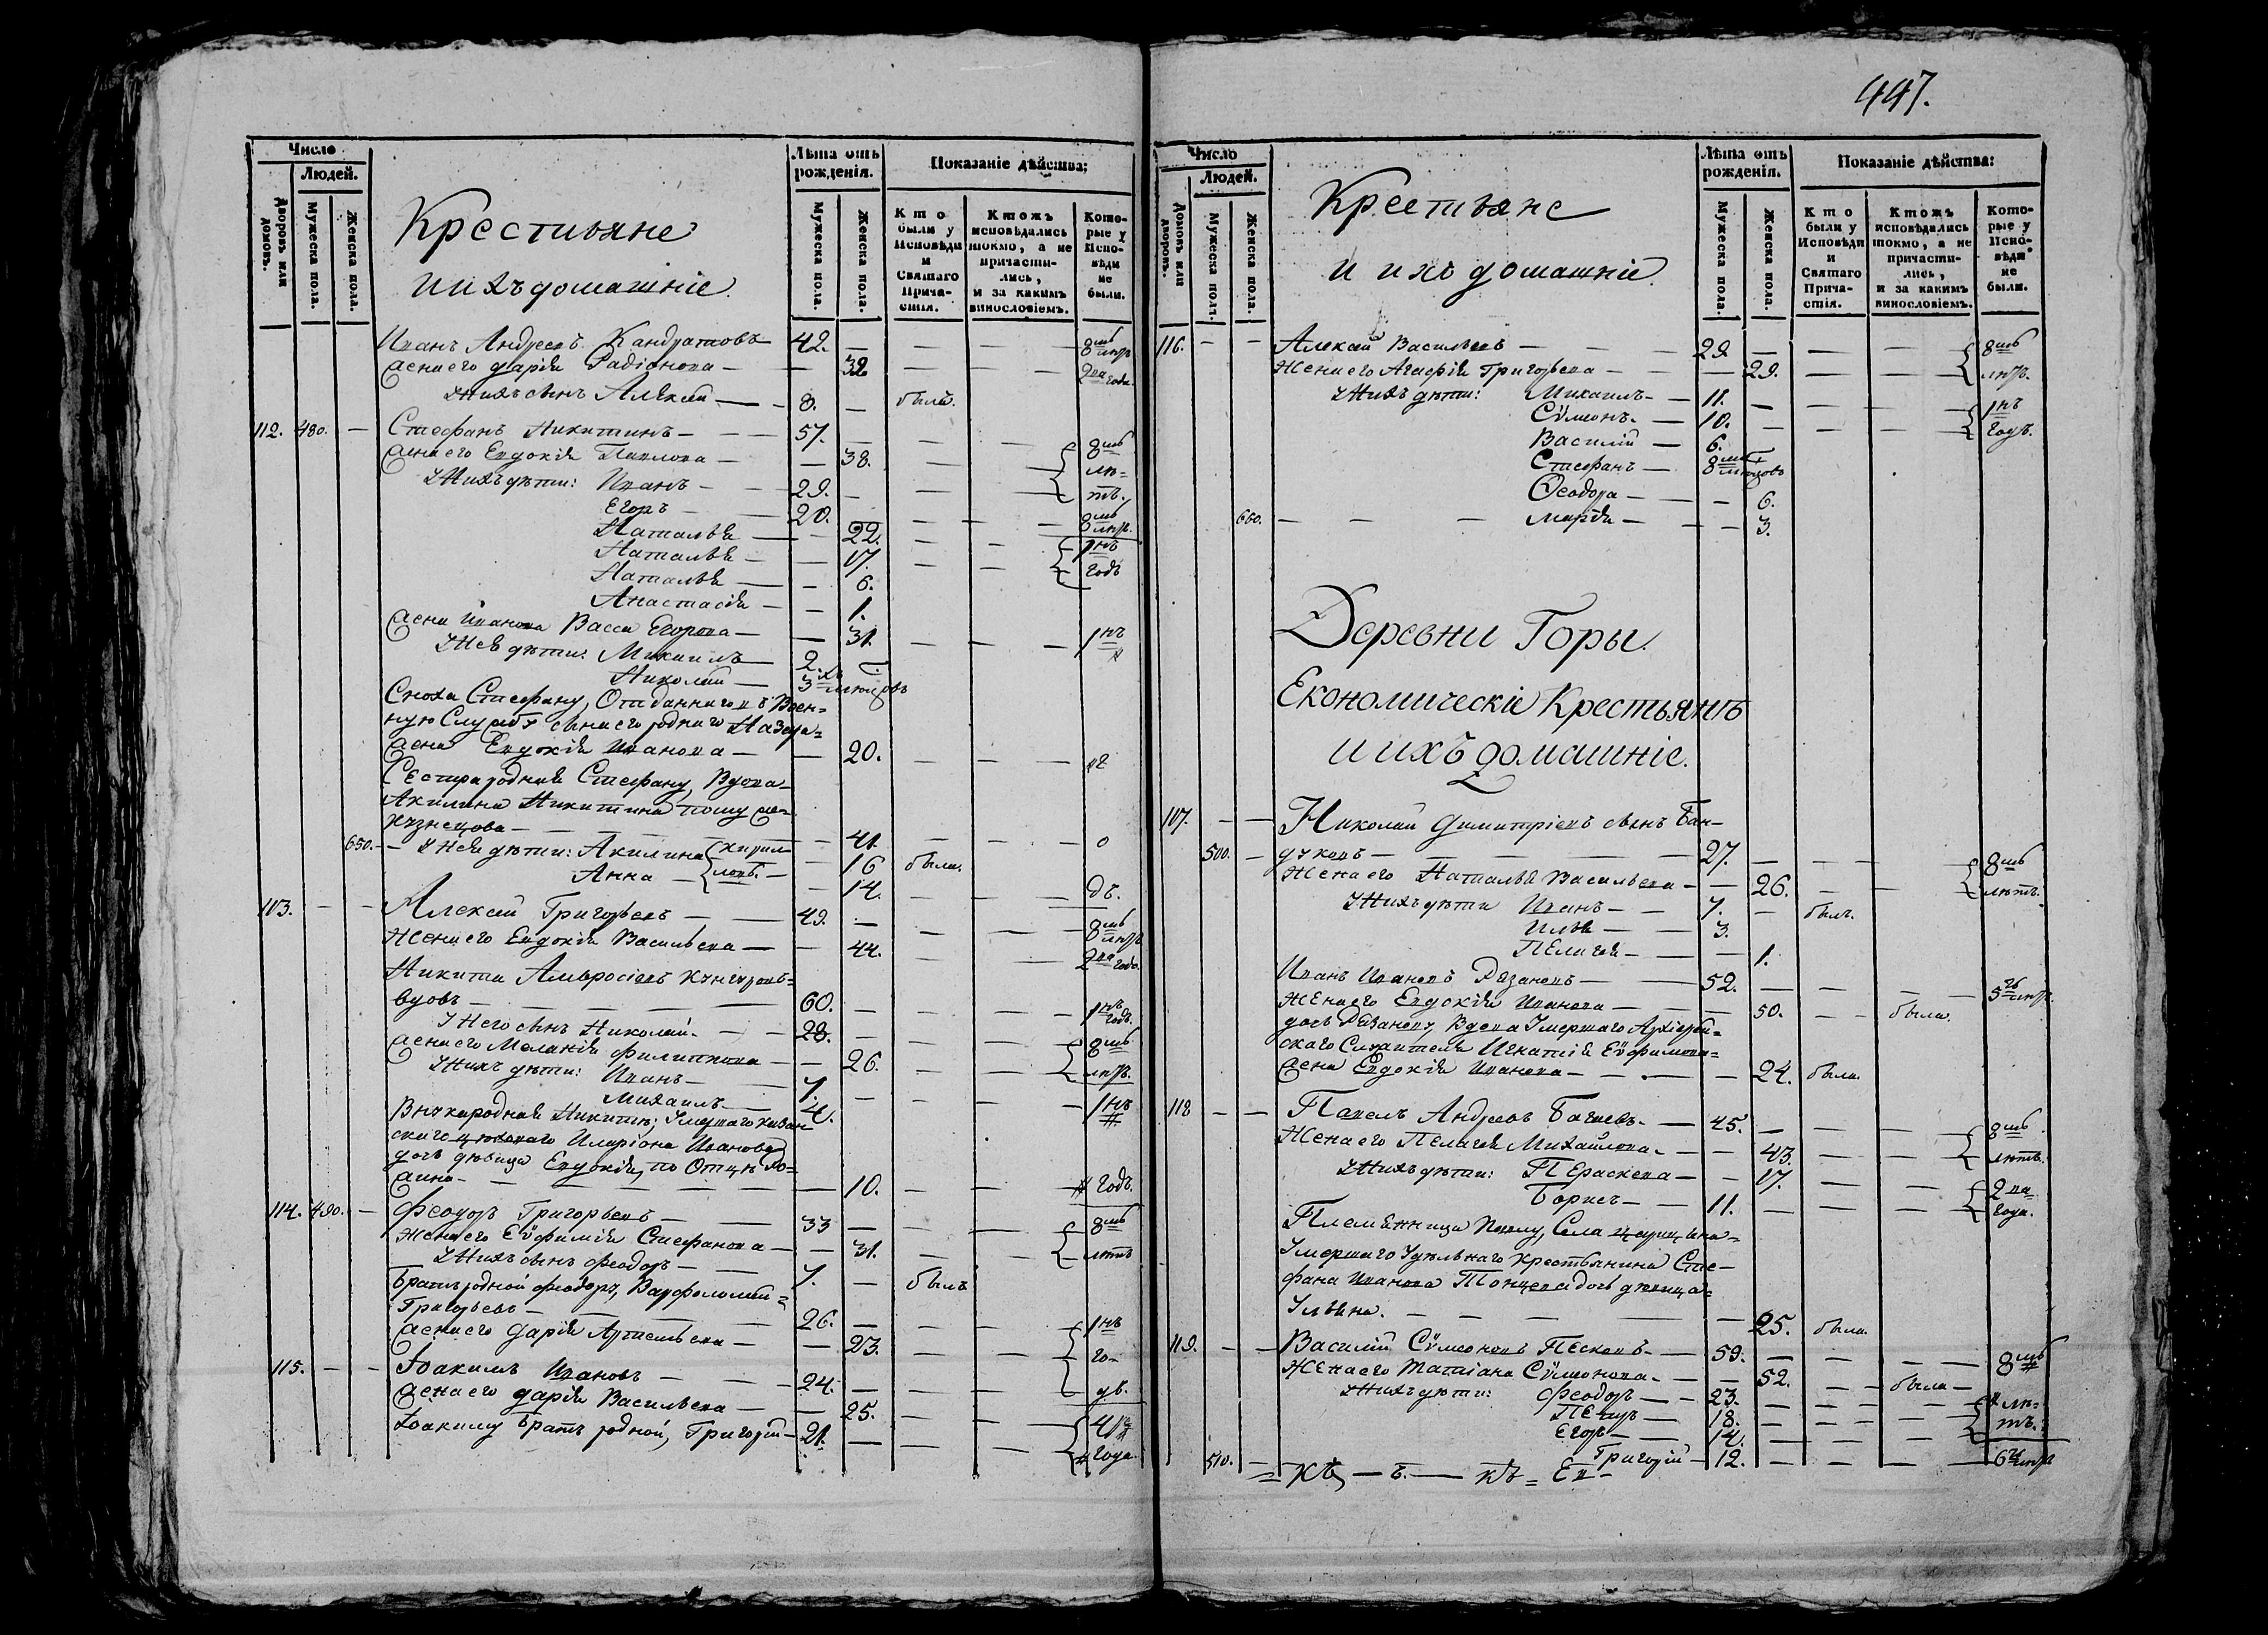 447.
Число
Людей.
Дворовъ или домовъ.
Мужеска пола.
Женска пола.
Крестьяне
и ихъ домашніе.
Лѣта отъ рожденія.
Мужеска пола.
Женска пола.
Показаніе дѣйства:
Кто были у Исповѣди и Святаго Причастія.
Ктожъ исповѣдались токмо, а не причастились, и за какимъ винословіемъ.
Которые у Исповѣди не были.
Иванъ Андреевъ Кандратовъ 42. — — — 8мь лѣтъ
Жена его Дарія Радіонова — 32 — — 2ва года.
У нихъ сынъ Алексій — 8. — былъ.
112. 480. — Стефанъ Никитинъ — 57. — — — 8мь
Жена его Евдокія Павлова — 38. — — лѣ=
У нихъ дѣти: Иванъ — 29. — — — тъ.
Егоръ — 20. — — — 8мь лѣтъ.
Наталья — 22. — — 1нъ
Наталья — 17. — — годъ
Наталья — 6.
Анастасія — 1.
Жена Иванова Васса Егорова — 31. — — 1нъ
У нея дѣти: Михаилъ — 2.
Николай — 3хъ мѣсяцовъ
Сноха Стефану, Отданнаго въ Воен=
ную Службу сына его роднаго Назара=
жена Евдокія Иванова — 20. — —
Сестра родная Стефану, Вдова
Акилина Никитина по мужѣ
Кузнецова — 41. — — о
650. — У нея дѣти: Акилина — 16 была.
Анна — 14. — дъ.
113. — — Алексій Григорьевъ — 49. — — — 8мь лѣтъ
Жена его Евдокія Васильева — 44. — — 2ва года.
Никита Амвросіевъ
вдовъ — 60. — — — 1нъ годъ.
У него сынъ Николай. — 28. — — — 8мь
Жена его Меланія Филиппова — 26. — — лѣтъ.
У нихъ дѣти: Иванъ — 7. — — — 1нъ
Михаилъ — 4.
Внука родная Никитѣ, Умершаго
Иларіона Иванова
дочь дѣвица Евдокія, по Отцѣ
— 10. — — годъ.
114. 490. — Феодоръ Григорьевъ — 33 — — — 8мь
Жена его Евфимія Стефанова — 31. — — лѣтъ
У нихъ сынъ Феодоръ — 7. — былъ
Братъ родной Феодору, Варфоломей=
Григорьевъ — 26. — — — 1нъ
Жена его Дарія Артемьева — 23. — — го-
115. — — Іоакимъ Ивановъ — 24. — — — дъ.
Жена его Дарія Васильева — 25. — — 4ре
Іоакиму братъ родной, Григорій — 21. — — — года.
Число
Людей.
Домовъ или дворовъ.
Мужеска пола.
Женска пола.
Крестьяне
и ихъ домашніе.
Лѣта отъ рожденія.
Мужеска пола.
Женска пола.
Показаніе дѣйства:
Кто были у Исповѣди и Святаго Причастія.
Ктожъ исповѣдались токмо, а не причастились, и за какимъ винословіемъ.
Которые у Исповѣди не были.
116. — — Алексій Васильевъ — 29. — — — 8мь
Жена его Агафія Григорьева — 29. — — лѣтъ.
У нихъ дѣти: Михаилъ — 11. — — — 1нъ
Сѵмеонъ. — 10. — — — годъ.
Василій — 6.
Стефанъ — 8ми мѣсяцовъ
Феодора — 6.
660. — — — Марія — 3.
Деревни Горы.
Економическіе Крестьянѣ
и ихъ домашніе.
107. — — Николай Димитріевъ сынъ Бан-
500. — дуковъ — 27. — — — 8мь
Жена его Наталья Васильева — 26. — — лѣтъ.
У нихъ дѣти Иванъ — 7. — былъ.
Илья — 3.
Пелагея — 1.
Иванъ Ивановъ Рязановъ — 52. — — — 5ть лѣтъ.
Жена его Евдокія Иванова — 50. — была.
дочь Рязанову, Вдова Умершаго Архіерей=
скаго Служителя Игнатія Евфимова=
жена Евдокія Иванова — 24. была.
118 — — Павелъ Андреевъ Багаевъ. — 45. — — — 8мь
Жена его Пелагея Михайлова. — 43. — — лѣтъ.
У нихъ дѣти: Параскева — 17. — — 2ва
Борисъ — 11. — — — года.
Племянница Павлу, Села Царицына=
Умершаго Удѣльнаго Крестьянина Сте-
фана Иванова дочь дѣвица=
Ульяна. — 25. была.
119. — — Василій Сѵмеоновъ Песковъ. — 59. — — — 8мь
Жена его Татіана Сѵмеонова. — 52. — была —
У нихъ дѣти: Феодоръ — 23. — — — лѣ=
Петръ — 18. — — — тъ.
Егоръ — 14. — — —
510. — Григорій — 12. — — — 6ть лѣтъ